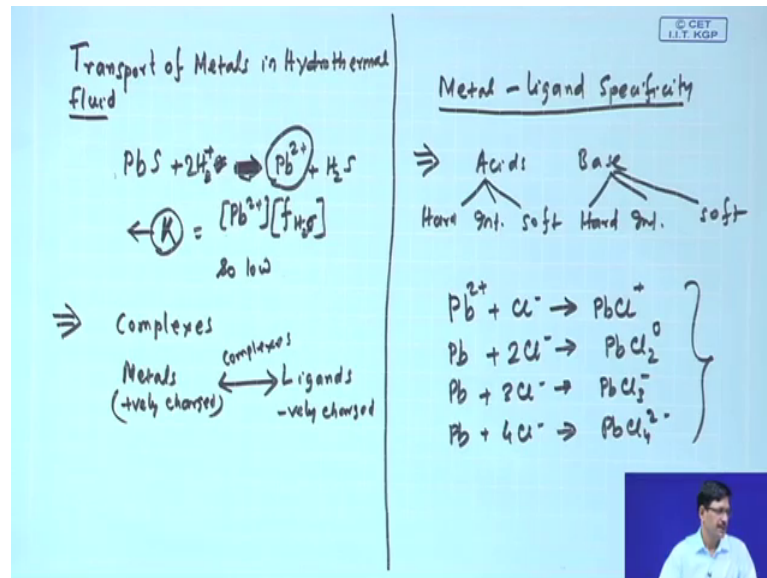 © CET
I.I.T. KGP
Transport of Metals in Hydrothermal
fluid
PbS + 2H⁺ → Pb²⁺ + H₂S
← K = [Pb²⁺][fH₂S]
so low
⇒ Complexes
complexes
Metals ⟷ Ligands
(+vely charged) -vely charged
Metal - Ligand Specificity
⇒ Acids Base
Hard Int. Soft Hard Int. Soft
Pb²⁺ + Cl⁻ → PbCl⁺
Pb + 2Cl⁻ → PbCl₂⁰
Pb + 3Cl⁻ → PbCl₃⁻
Pb + 4Cl⁻ ⇒ PbCl₄²⁻